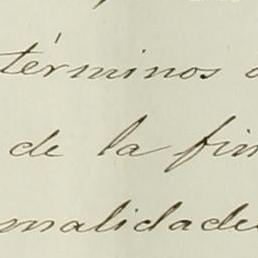 términos
de la fin
malidades